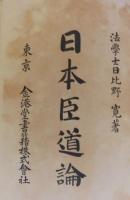 法學士日比野寛著
日本臣道論
東京 金港堂書籍株式會社